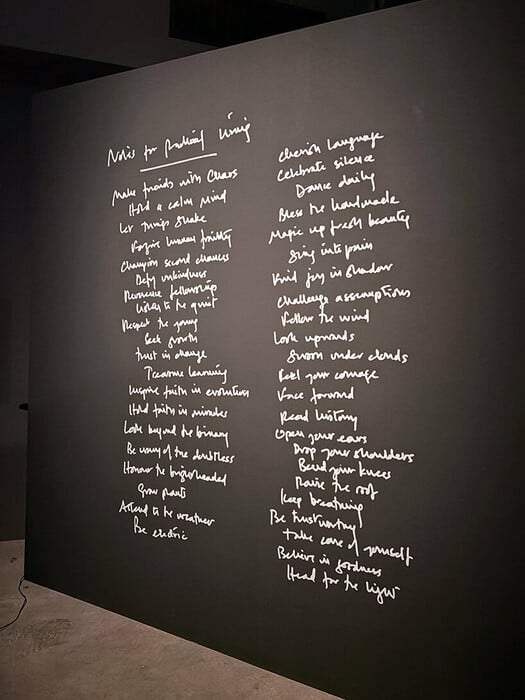 Notes for Radical Living
Make friends with Chaos
Hold a calm mind
Let things shake
Forgive human frailty
Champion second chances
Defy unkindness
Reverence fellowship
Listen to the quiet
Respect the young
Seek growth
Trust in change
Treasure learning
Inspire faith in evolution
Hold faith in miracles
Look beyond the binary
Be wary of the doubtless
Honour the bigger hearted
Grow plants
Attend to the weather
Be electric
Cherish Language
Celebrate silence
Dance daily
Bless the handmade
Magic up fresh beauty
Sing into pain
Find joy in shadow
Challenge assumptions
Follow the wind
Look upwards
Swoon under clouds
Feel your courage
Face forward
Read history
Open your ears
Drop your shoulders
Bend your knees
Raise the roof
Keep breathing
Be trustworthy
Take care of yourself
Believe in goodness
Head for the light